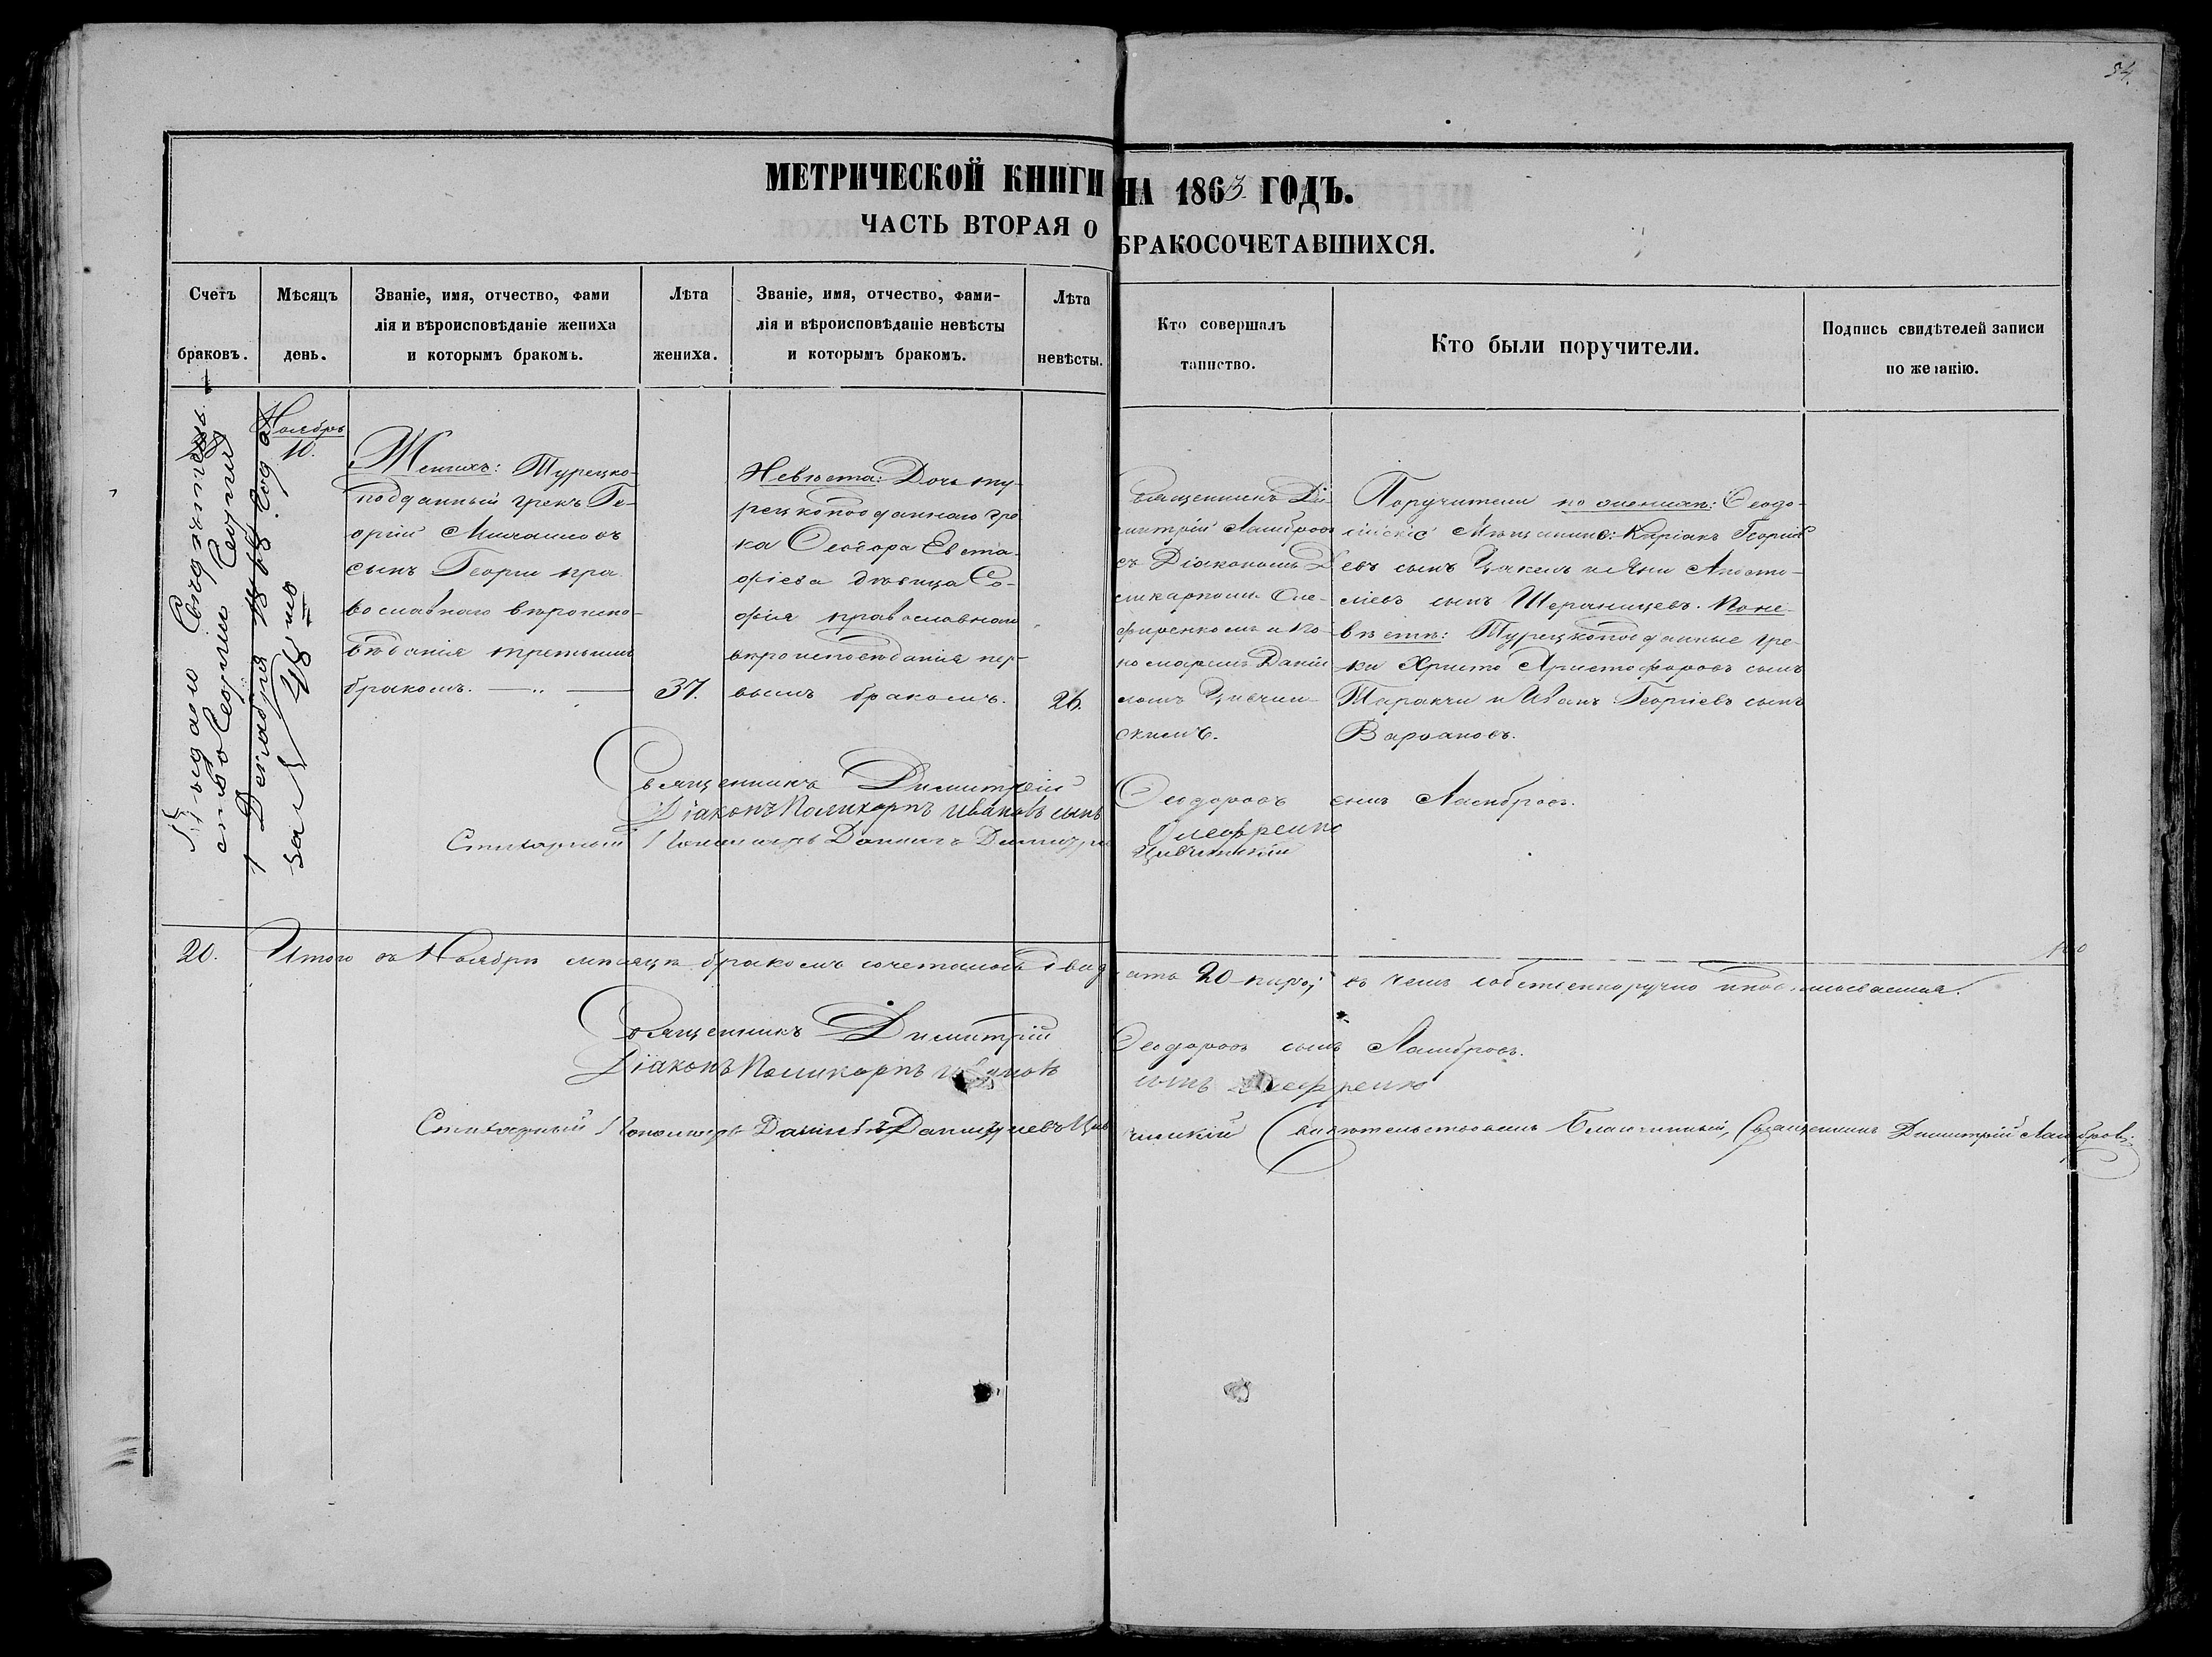 54.
МЕТРИЧЕСКОЙ КНИГИ НА 1863 ГОДЪ.
ЧАСТЬ ВТОРАЯ О БРАКОСОЧЕТАВШИХСЯ.
Счетъ браковъ.
Мѣсяцъ день.
Званіе, имя, отчество, фами
лія и вѣроисповѣданіе жениха
и которымъ бракомъ.
Лѣта жениха.
Званіе, имя, отчество, фами-
лія и вѣроисповѣданіе невѣсты
и которымъ бракомъ.
Лѣта невѣсты.
Кто совершалъ таинство.
Кто были поручители.
Подпись свидѣтелей записи
по желанію.
Ноябръ
10.
Женихъ: Турецко-
подданный грекъ Ге-
оргій Михаиловъ
сынъ Георги пра-
вославнаго вѣроиспо-
вѣданія третьимъ
бракомъ.
37.
Невѣста: Дочь ту-
рецкоподданнаго гре
ка Ѳеодора Евста-
фіева дѣвица Со-
фія православнаго
вѣроисповѣданія пер-
вымъ бракомъ.
26.
Священникъ Ди-
митрій Ламбровъ
съ Діакономъ
ликарпомъ Оле-
фиренкомъ и По-
номаремъ Даніи
ломъ Цивчин-
скимъ.
Поручители по женихѣ: Ѳеодо-
сійскіе Мѣщанине: Киріакъ Георгі
евъ сынъ и Яни Апосто-
ловъ сынъ По не-
вѣстѣ: Турецкоподданные гре-
ки Христо Христофоровъ сынъ
и Иванъ Георгіевъ сынъ
Выдано Свидѣтельство Георгію Георги
1 Декабря 1868 года
за № 48
Священникъ Димитрій Ѳеодоровъ сынъ Ламбровъ.
Діаконъ Поликарпъ Ивановъ сынъ Олефренко
Пономарь Даніилъ Цивчинскій
20.
Итого въ Ноябрѣ мѣсяцѣ бракомъ сочеталось двадцать 20 паръ; въ чемъ собственноручно и подписываемся.
Священникъ Димитрій Ѳеодоровъ сынъ Ламбровъ.
Діаконъ Поликарпъ Ивановъ сынъ Олефренко
Пономарь Даніилъ Цивчинскій
Свидѣтельствовалъ Благочинный, Священникъ Димитрій Ламбровъ.